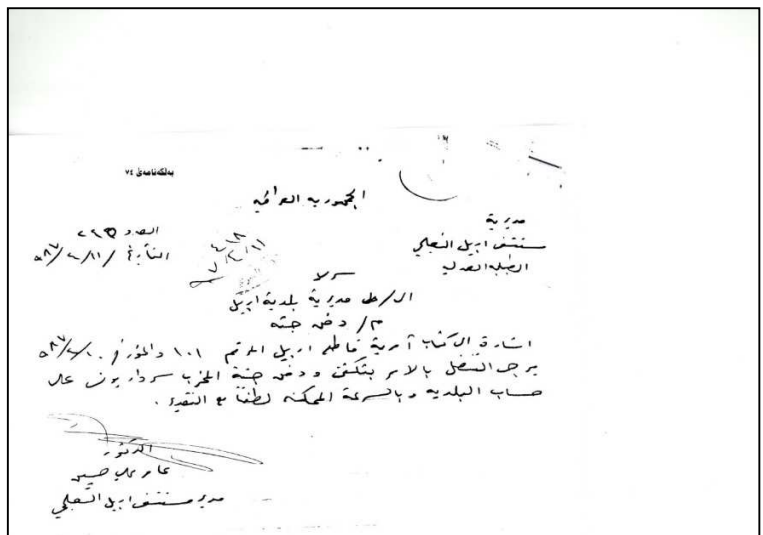 بەلگەنامەی ٧٤
الجمهورية العراقية
مديرية
مستشفى اربيل التعليمي
الطب العدلي
العدد
التأريخ / ١١/٢/٩٨٧
سري
الى / مديرية بلدية اربيل
م / دفن جثة
اشارة الى كتاب آمرية قاطع اربيل المرقم ١٠١ والمؤرخ في ١٠/٢/٩٨٧
يرجى التفضل بالامر بتكفين ودفن جثة المخرب سردار يونس على
حساب البلدية وبالسرعة الممكنة لطفا مع التقدير .
الدكتور
عامر علي حسين
مدير مستشفى اربيل التعليمي